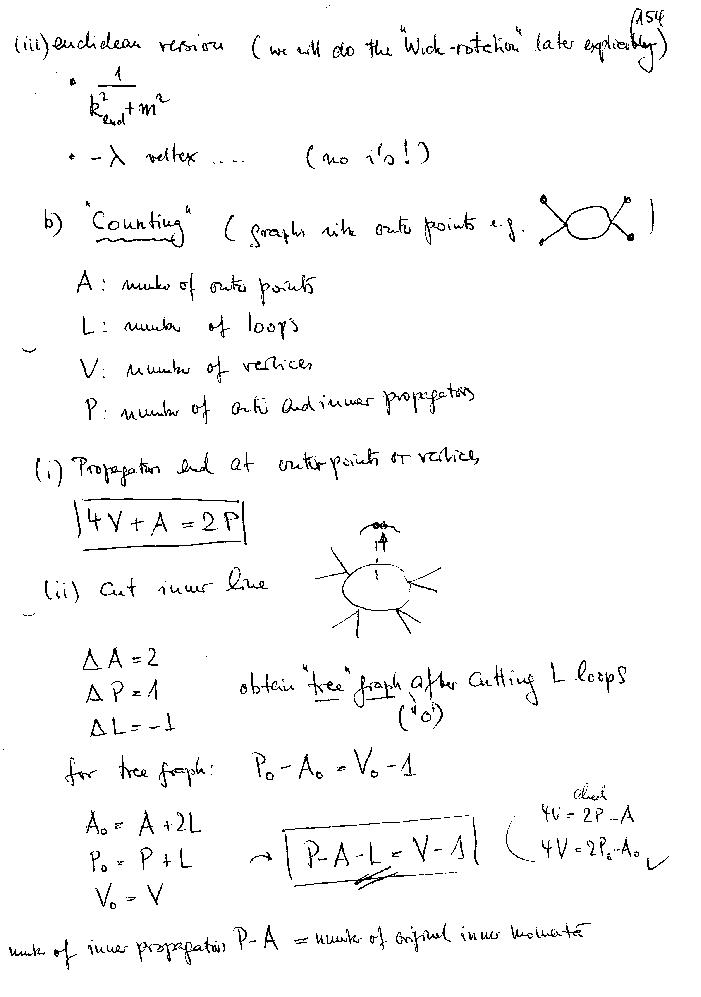 154
(iii) euclidean version (we will do the "Wick-rotation" later explicitly)
• 1 / (k²_eucl + m²)
• -λ vertex .... (no i's!)
b) "Counting" (graphs with outer points e.g. )
A: number of outer points
L: number of loops
V: number of vertices
P: number of outer and inner propagators
(i) Propagators end at outer points or vertices
4V + A = 2P
(ii) Cut inner line
ΔA = 2
ΔP = 1 obtain "tree" graph after cutting L loops
ΔL = -1 ("0")
for tree graph: P₀ - A₀ = V₀ - 1
A₀ = A + 2L check 4V = 2P - A
P₀ = P + L → P - A - L = V - 1 4V = 2P₀ - A₀ ✓
V₀ = V
number of inner propagators P - A = number of original inner momenta